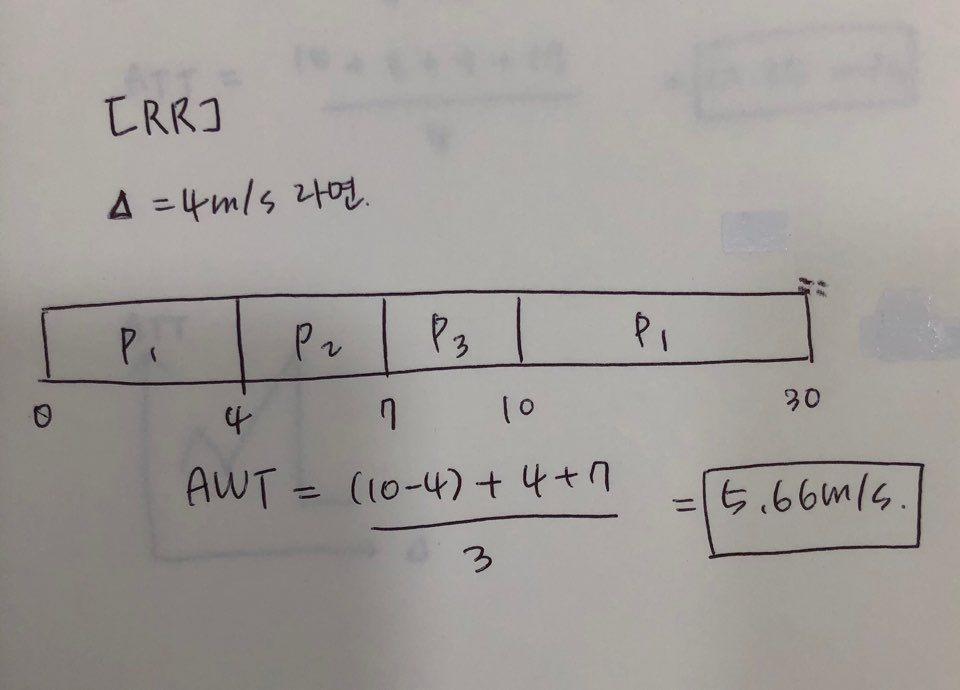 [RR]
Δ = 4m/s 라면.
P1 P2 P3 P1
0 4 7 10 30
AWT = (10-4) + 4 + 7 = 5.66m/s.
3